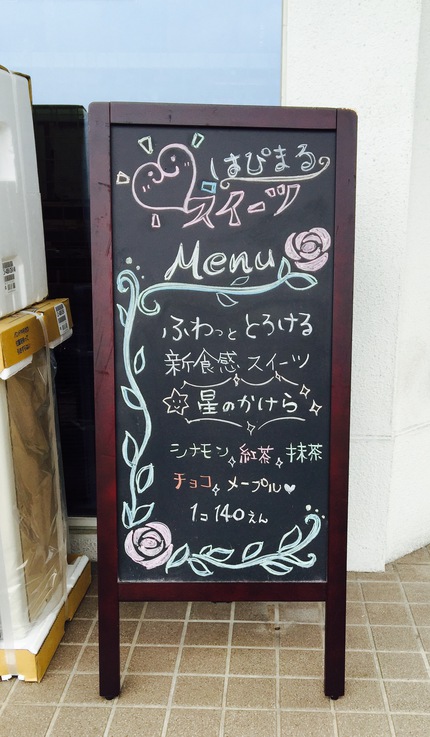 はぴまる
スイーツ
Menu
ふわっと とろける
新食感 スイーツ
星のかけら
シナモン 紅茶 抹茶
チョコ メープル♥
1コ 140えん